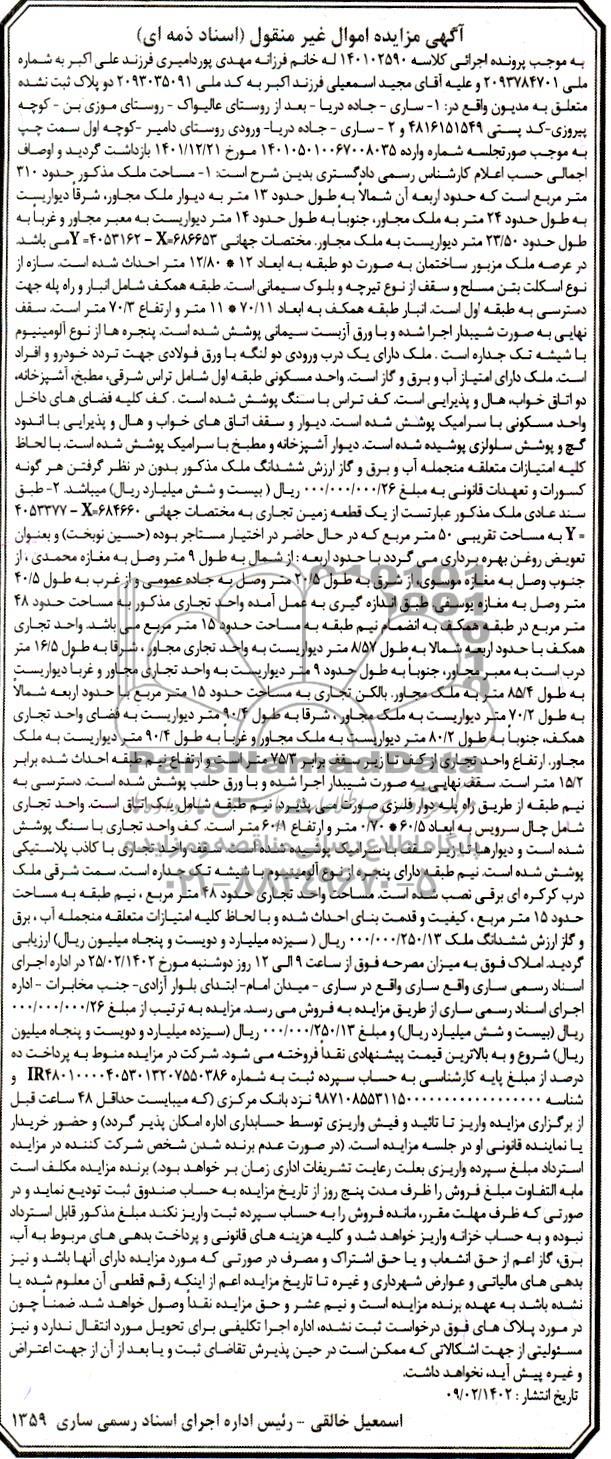 آگهی مزایده اموال غیر منقول (اسناد ذمه ای)
به موجب پرونده اجرائی کلاسه ۱۴۰۱۰۲۵۹۰ له خانم فرزانه مهدی پوردامیری فرزند علی اکبر به شماره
ملی ۲۰۹۳۷۸۴۷۰۱ و علیه آقای مجید اسمعیلی فرزند اکبر به کد ملی ۲۰۹۳۰۳۵۰۹۱ دو پلاک ثبت نشده
متعلق به مدیون واقع در: ۱- ساری - جاده دریا - بعد از روستای عالیواک - روستای موزی بن - کوچه
پیروزی-کد پستی ۴۸۱۶۱۵۱۵۴۹ و ۲ - ساری - جاده دریا- ورودی روستای دامیر -کوچه اول سمت چپ
به موجب صورتجلسه شماره وارده ۱۴۰۱۰۵۰۱۰۰۶۷۰۰۸۰۳۵ مورخ ۱۴۰۱/۱۲/۲۱ بازداشت گردید و اوصاف
اجمالی حسب اعلام کارشناس رسمی دادگستری بدین شرح است: ۱- مساحت ملک مذکور حدود ۳۱۰
متر مربع است که حدود اربعه آن شمالاً به طول حدود ۱۳ متر به دیوار ملک مجاور، شرقاً دیواریست
به طول حدود ۲۴ متر به ملک مجاور، جنوباً به طول حدود ۱۴ متر دیواریست به معبر مجاور و غرباً به
طول حدود ۲۳/۵۰ متر دیواریست به ملک مجاور. مختصات جهانی X=۶۸۶۶۵۳ - Y=۴۰۵۳۱۶۲ می باشد.
در عرصه ملک مزبور ساختمان به صورت دو طبقه به ابعاد ۱۲ * ۱۲/۸۰ متر احداث شده است. سازه از
نوع اسکلت بتن مسلح و سقف از نوع تیرچه و بلوک سیمانی است. طبقه همکف شامل انبار و راه پله جهت
دسترسی به طبقه اول است. انبار طبقه همکف به ابعاد ۷۰/۱۱ * ۱۱ متر و ارتفاع ۷۰/۳ متر است. سقف
نهایی به صورت شیبدار اجرا شده و با ورق آزبست سیمانی پوشش شده است. پنجره ها از نوع آلومینیوم
با شیشه تک جداره است . ملک دارای یک درب ورودی دو لنگه با ورق فولادی جهت تردد خودرو و افراد
است. ملک دارای امتیاز آب و برق و گاز است. واحد مسکونی طبقه اول شامل تراس شرقی، مطبخ، آشپزخانه،
دو اتاق خواب، هال و پذیرایی است. کف تراس با سنگ پوشش شده است . کف کلیه فضای های داخل
واحد مسکونی با سرامیک پوشش شده است. دیوار و سقف اتاق های خواب و هال و پذیرایی با اندود
گچ و پوشش سلولزی پوشیده شده است. دیوار آشپزخانه و مطبخ با سرامیک پوشش شده است. با لحاظ
کلیه امتیازات متعلقه منجمله آب و برق و گاز ارزش ششدانگ ملک مذکور بدون در نظر گرفتن هر گونه
کسورات و تعهدات قانونی به مبلغ ۰۰۰/۰۰۰/۰۰۰/۲۶ ریال ( بیست و شش میلیارد ریال) میباشد. ۲- طبق
سند عادی ملک مذکور عبارتست از یک قطعه زمین تجاری به مختصات جهانی X=۶۸۴۶۶۰ - ۴۰۵۳۳۷۷
= Y به مساحت تقریبی ۵۰ متر مربع که در حال حاضر در اختیار مستاجر بوده (حسین نوبخت) و بعنوان
تعویض روغن بهره برداری می گردد با حدود اربعه : از شمال به طول ۹ متر وصل به مغازه محمدی ، از
جنوب وصل به مغازه موسوی، از شرق به طول ۲۰/۵ متر وصل به جاده عمومی و از غرب به طول ۴۰/۵
متر وصل به مغازه یوسفی طبق اندازه گیری به عمل آمده واحد تجاری مذکور به مساحت حدود ۴۸
متر مربع در طبقه همکف به انضمام نیم طبقه به مساحت حدود ۱۵ متر مربع می باشد. واحد تجاری
همکف با حدود اربعه شمالا به طول ۸/۵۷ متر دیواریست به واحد تجاری مجاور ، شرقا به طول ۱۶/۵ متر
درب است به معبر مجاور، جنوباً به طول حدود ۹ متر دیواریست به واحد تجاری مجاور و غرباً دیواریست
به طول ۸۵/۴ متر به ملک مجاور. بالکن تجاری به مساحت حدود ۱۵ متر مربع با حدود اربعه شمالاً
به طول ۷۰/۲ متر دیواریست به ملک مجاور ، شرقا به طول ۹۰/۴ متر دیواریست به فضای واحد تجاری
همکف، جنوباً به طول ۸۰/۲ متر دیواریست به ملک مجاور و غرباً به طول ۹۰/۴ متر دیواریست به ملک
مجاور. ارتفاع واحد تجاری از کف تا زیر سقف برابر ۷۵/۳ متر است و ارتفاع نیم طبقه احداث شده برابر
۱۵/۲ متر است. سقف نهایی به صورت شیبدار اجرا شده و با ورق حلب پوشش شده است. دسترسی به
نیم طبقه از طریق راه پله دوار فلزی صورت می پذیرد. نیم طبقه شامل یک اتاق است. واحد تجاری
شامل چال سرویس به ابعاد ۶۰/۵ * ۰/۷۰ متر و ارتفاع ۶۰/۱ متر است. کف واحد تجاری با سنگ پوشش
شده است و دیوارها تا زیر سقف با سرامیک پوشیده شده است. سقف واحد تجاری با کاذب پلاستیکی
پوشش شده است. نیم طبقه دارای پنجره از نوع آلومینیوم با شیشه تک جداره است. سمت شرقی ملک
درب کرکره ای برقی نصب شده است. مساحت واحد تجاری حدود ۴۸ متر مربع ، نیم طبقه به مساحت
حدود ۱۵ متر مربع ، کیفیت و قدمت بنای احداث شده و با لحاظ کلیه امتیازات متعلقه منجمله آب ، برق
و گاز ارزش ششدانگ ملک ۰۰۰/۰۰۰/۲۵۰/۱۳ ریال ( سیزده میلیارد و دویست و پنجاه میلیون ریال) ارزیابی
گردید. املاک فوق به میزان مصرحه فوق از ساعت ۹ الی ۱۲ روز دوشنبه مورخ ۲۵/۰۲/۱۴۰۲ در اداره اجرای
اسناد رسمی ساری واقع ساری واقع در ساری - میدان امام- ابتدای بلوار آزادی- جنب مخابرات - اداره
اجرای اسناد رسمی ساری از طریق مزایده به فروش می رسد. مزایده به ترتیب از مبلغ ۰۰۰/۰۰۰/۰۰۰/۲۶
ریال (بیست و شش میلیارد ریال) و مبلغ ۰۰۰/۰۰۰/۲۵۰/۱۳ ریال (سیزده میلیارد و دویست و پنجاه میلیون
ریال) شروع و به بالاترین قیمت پیشنهادی نقداً فروخته می شود. شرکت در مزایده منوط به پرداخت ده
درصد از مبلغ پایه کارشناسی به حساب سپرده ثبت به شماره IR۴۸۰۱۰۰۰۰۴۰۵۳۰۱۳۲۰۷۵۵۰۳۸۶ و
شناسه ۹۸۷۱۰۸۵۵۳۱۱۵۰۰۰۰۰۰۰۰۰۰۰۰۰۰۰۰۰ نزد بانک مرکزی (که میبایست حداقل ۴۸ ساعت قبل
از برگزاری مزایده واریز تا تائید و فیش واریزی توسط حسابداری اداره امکان پذیر گردد) و حضور خریدار
یا نماینده قانونی او در جلسه مزایده است. (در صورت عدم برنده شدن شخص شرکت کننده در مزایده
استرداد مبلغ سپرده واریزی بعلت رعایت تشریفات اداری زمان بر خواهد بود.) برنده مزایده مکلف است
مابه التفاوت مبلغ فروش را ظرف مدت پنج روز از تاریخ مزایده به حساب صندوق ثبت تودیع نماید و در
صورتی که ظرف مهلت مقرر، مانده فروش را به حساب سپرده ثبت واریز نکند مبلغ مذکور قابل استرداد
نبوده و به حساب خزانه واریز خواهد شد و کلیه هزینه های قانونی و پرداخت بدهی های مربوط به آب،
برق، گاز اعم از حق انشعاب و یا حق اشتراک و مصرف در صورتی که مورد مزایده دارای آنها باشد و نیز
بدهی های مالیاتی و عوارض شهرداری و غیره تا تاریخ مزایده اعم از اینکه رقم قطعی آن معلوم شده یا
نشده باشد به عهده برنده مزایده است و نیم عشر و حق مزایده نقداً وصول خواهد شد. ضمناً چون
در مورد پلاک های فوق درخواست ثبت نشده، اداره اجرا تکلیفی برای تحویل مورد انتقال ندارد و نیز
مسئولیتی از جهت اشکالاتی که ممکن است در حین پذیرش تقاضای ثبت و یا بعد از آن از جهت اعتراض
و غیره پیش آید، نخواهد داشت.
تاریخ انتشار : ۰۹/۰۲/۱۴۰۲
اسمعیل خالقی - رئیس اداره اجرای اسناد رسمی ساری ۱۳۵۹
ParsNamadData
پایگاه اطلاع رسانی مناقصه و مزایده
۰۲۱-۸۸۳۴۹۶۷۰-۵